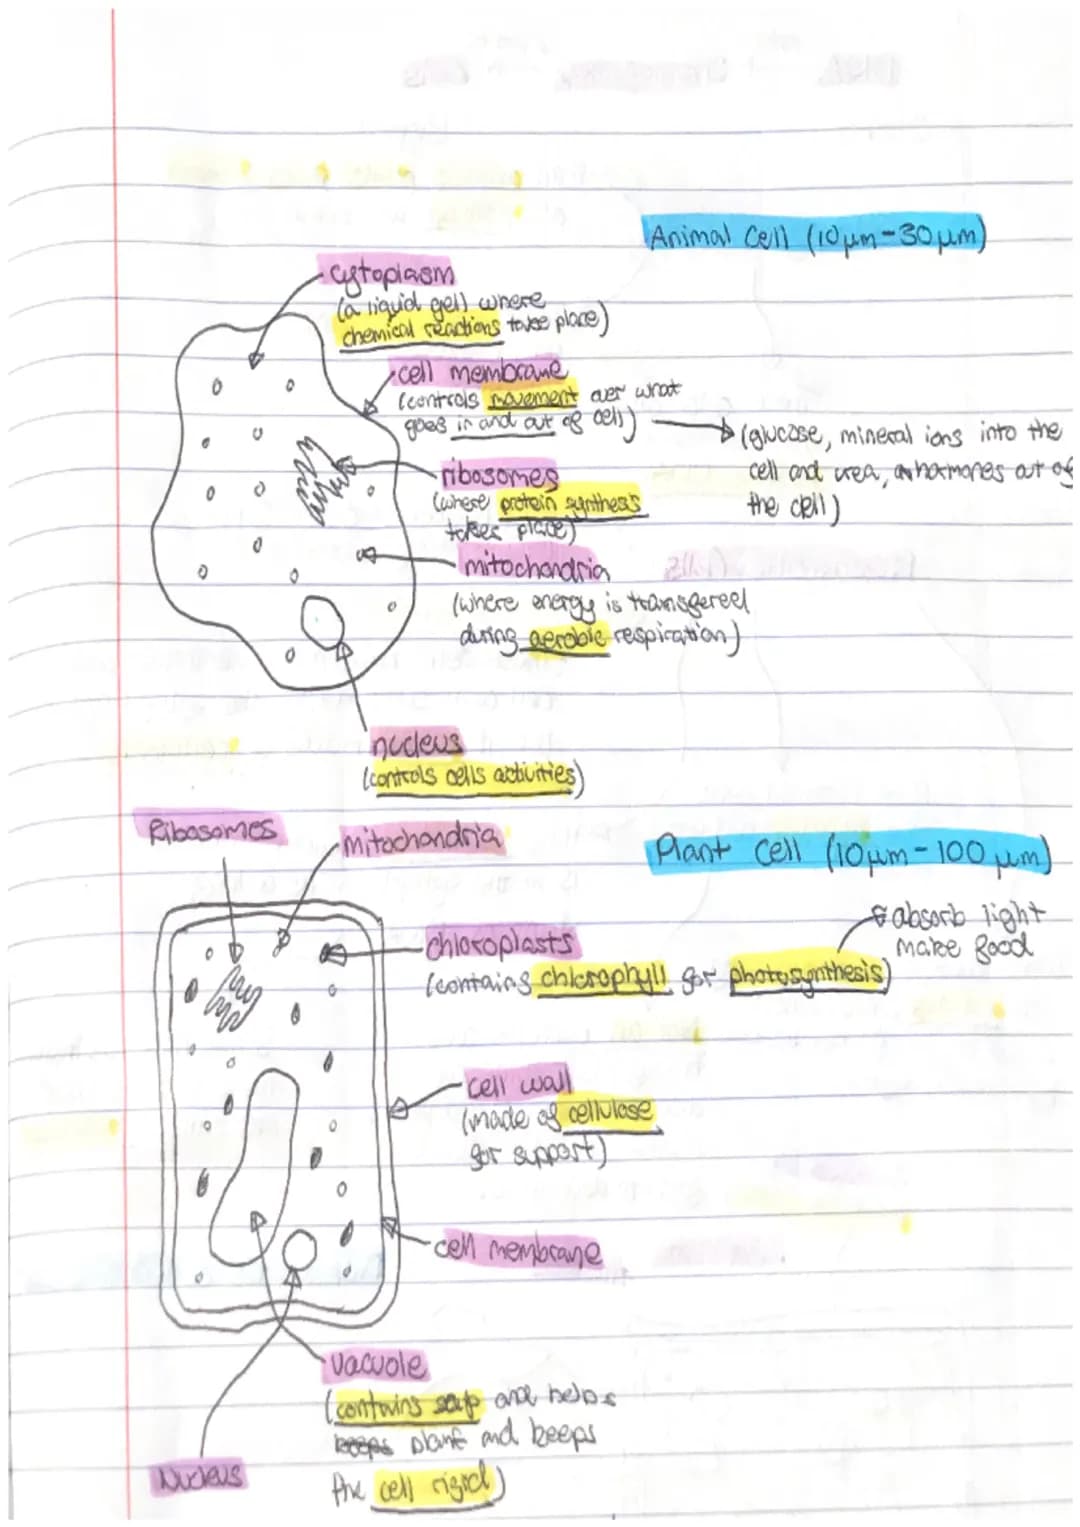 Animal Cell (10 μm - 30 μm)
cytoplasm
(a liquid gell where
chemical reactions take place)
cell membrane
(controls movement over what
goes in and out of cell)
(glucose, mineral ions into the
cell and urea, hormones out of
the cell)
ribosomes
(where protein synthesis
takes place)
mitochondria
(where energy is transfered
during aerobic respiration)
nucleus
(controls cells activities)
Ribosomes
mitochondria
Plant Cell (10 μm - 100 μm)
absorb light
make food
chloroplasts
(contains chlorophyll for photosynthesis)
cell wall
(made of cellulose
for support)
cell membrane
vacuole
(contains sap and helps
keeps plant and keeps
the cell rigid)
Nucleus